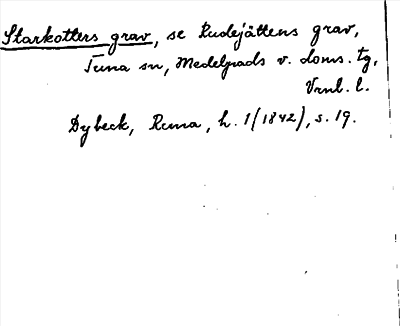 Starkotters grav, se Rudejättens grav,
Tuna sn, Medelpads v. doms. tg,
Vrnl. l.
Dybeck, Runa, h. 1 (1842), s. 19.